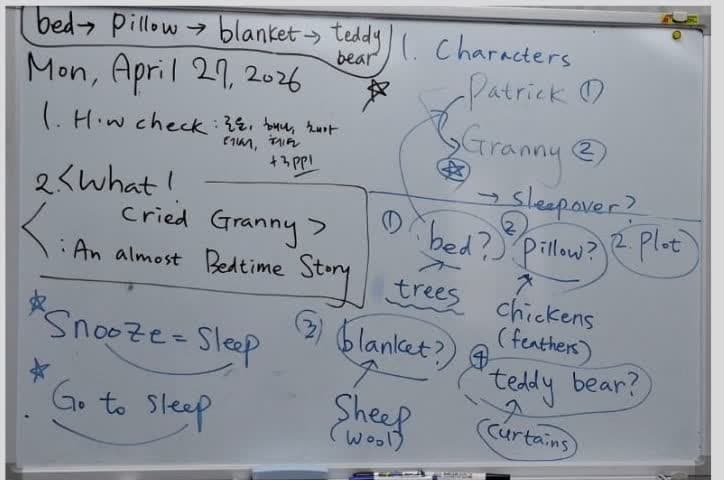 bed → pillow → blanket → teddy bear
Mon, April 27, 2026
1. H.w check :
+3 ppl
2. <What!
Cried Granny>
: An almost Bedtime Story
Snooze = sleep
Go to sleep
1. Characters
Patrick ①
Granny ②
→ sleepover?
2. Plot
① bed?
trees
② pillow?
chickens
(feathers)
③ blanket?
Sheep
(wool)
④ teddy bear?
curtains